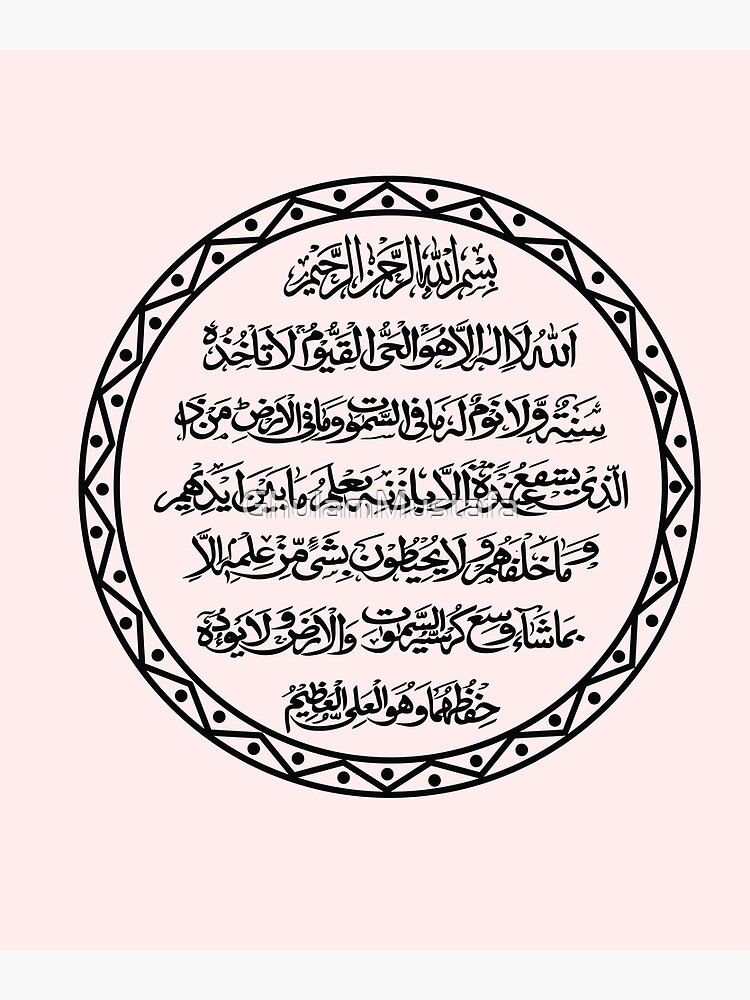 بِسْمِ اللهِ الرَّحْمٰنِ الرَّحِيْمِ
اَللهُ لَا اِلٰهَ اِلَّا هُوَ اَلْحَىُّ الْقَيُّوْمُ لَا تَاْخُذُهٗ
سِنَةٌ وَّلَا نَوْمٌ لَهٗ مَا فِى السَّمٰوٰتِ وَمَا فِى الْاَرْضِ مَنْ ذَا
الَّذِىْ يَشْفَعُ عِنْدَهٗ اِلَّا بِاِذْنِهٖ يَعْلَمُ مَا بَيْنَ اَيْدِيْهِمْ
GhulamMustafa
وَمَا خَلْفَهُمْ وَلَا يُحِيْطُوْنَ بِشَىْءٍ مِّنْ عِلْمِهٖ اِلَّا
بِمَا شَآءَ وَسِعَ كُرْسِيُّهُ السَّمٰوٰتِ وَالْاَرْضَ وَلَا يَـُٔوْدُهٗ
حِفْظُهُمَا وَهُوَ الْعَلِىُّ الْعَظِيْمُ